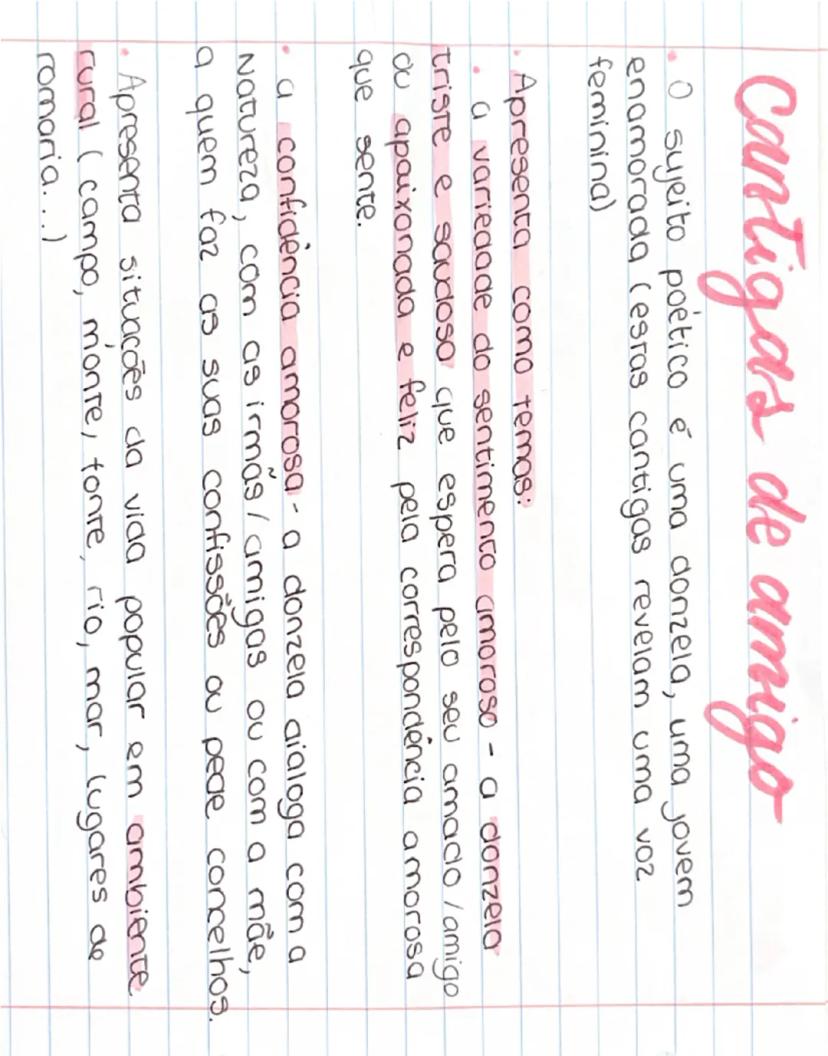 Cantigas de amigo
• O sujeito poético é uma donzela, uma jovem
enamorada (estas cantigas revelam uma voz
feminina)
• Apresenta como temas:
• a variedade do sentimento amoroso - a donzela
triste e saudosa que espera pelo seu amado/amigo
ou apaixonada e feliz pela correspondência amorosa
que sente.
• a confidência amorosa - a donzela dialoga com a
Natureza, com as irmãs/amigas ou com a mãe,
a quem faz as suas confissões ou pede concelhos.
• Apresenta situações da vida popular em ambiente
rural (campo, monte, fonte, rio, mar, lugares de
romaria...)